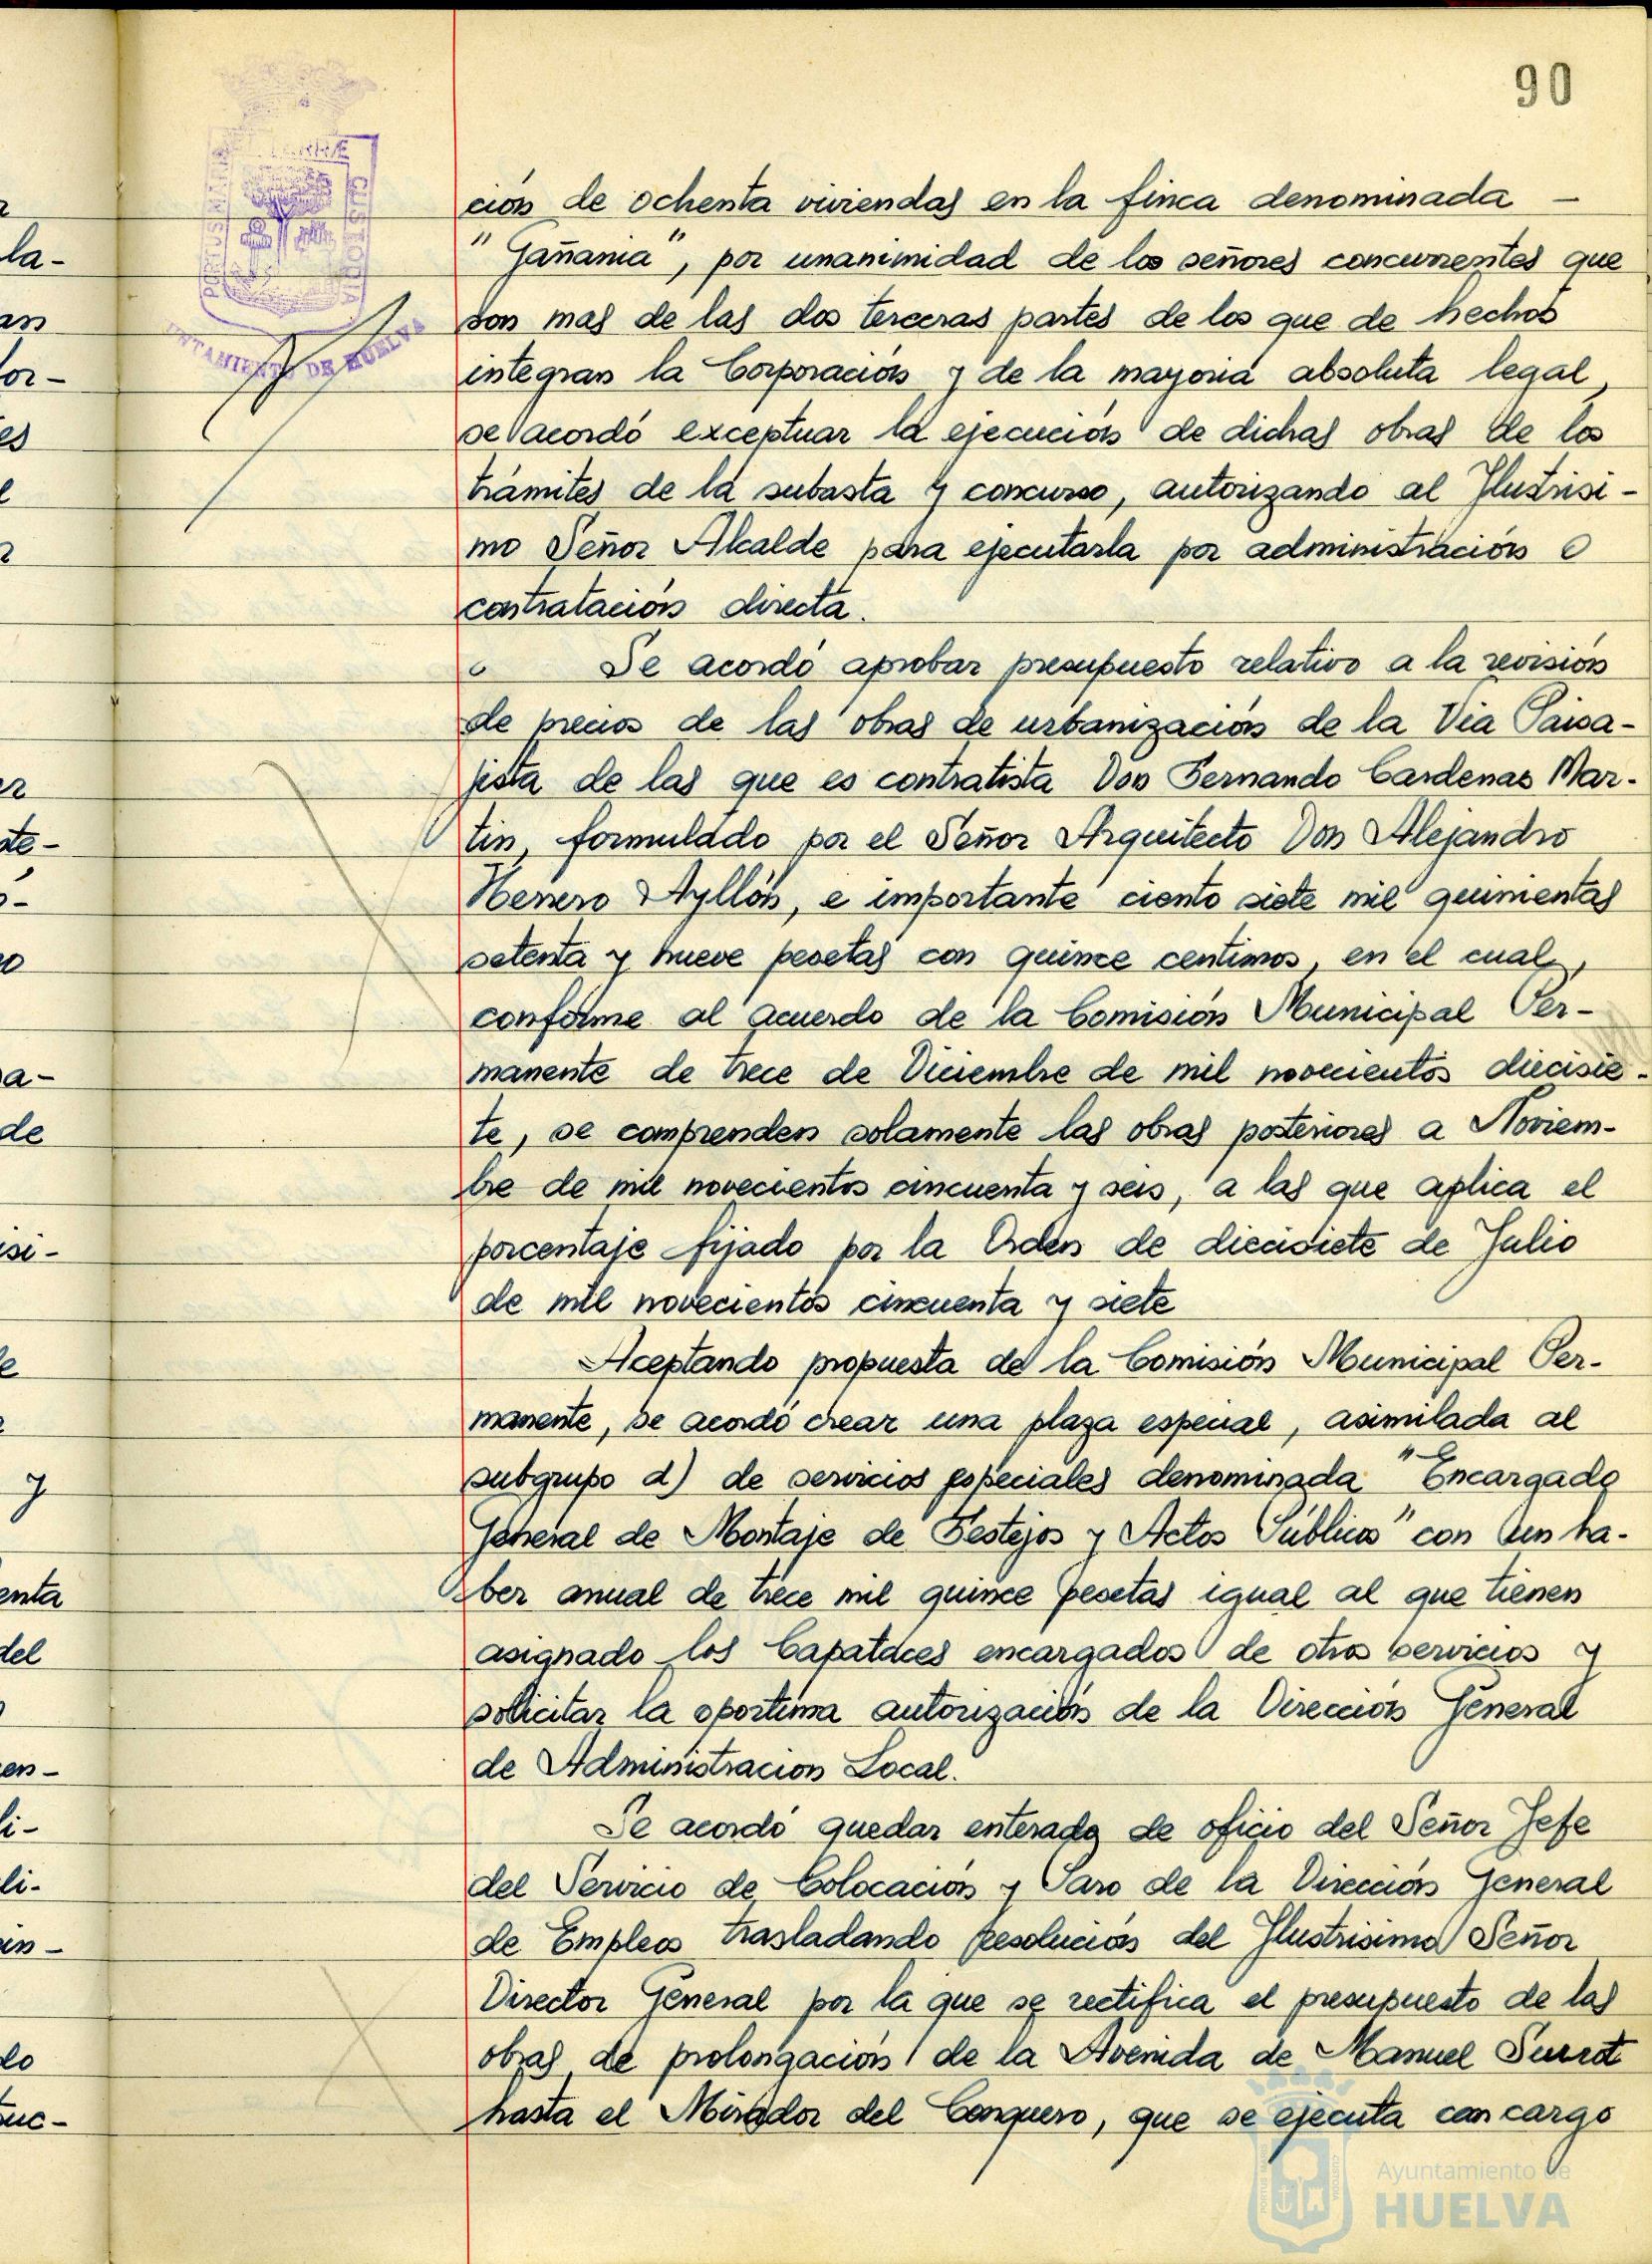 90
PORTUS MARIS
ET TERRAE
CUSTODIA
UNTAMIENTO DE HUELVA
ción de ochenta viviendas en la finca denominada —
"Gañania", por unanimidad de los señores concurrentes que
son mas de las dos terceras partes de los que de hechos
integran la Corporación y de la mayoria absoluta legal,
se acordó exceptuar la ejecución de dichas obras de los
trámites de la subasta y concurso, autorizando al Ilustrisi-
mo Señor Alcalde para ejecutarla por administración o
contratación directa.
Se acordó aprobar presupuesto relativo a la revisión
de precios de las obras de urbanización de la Via Paisa-
jista de las que es contratista Don Fernando Cardenas Mar-
tin, formulado por el Señor Arquitecto Don Alejandro
Herrero Ayllón, e importante ciento siete mil quinientas
setenta y nueve pesetas con quince centimos, en el cual,
conforme al acuerdo de la Comisión Municipal Per-
manente de trece de Diciembre de mil novecientos diecisie-
te, se comprenden solamente las obras posteriores a Noviem-
bre de mil novecientos cincuenta y seis, a las que aplica el
porcentaje fijado por la Orden de diecisiete de Julio
de mil novecientos cincuenta y siete
Aceptando propuesta de la Comisión Municipal Per-
manente, se acordó crear una plaza especial, asimilada al
subgrupo d) de servicios especiales denominada "Encargado
General de Montaje de Festejos y Actos Públicos" con un ha-
ber anual de trece mil quince pesetas igual al que tienen
asignado los Capataces encargados de otros servicios y
solicitar la oportuna autorización de la Dirección General
de Administracion Local.
Se acordó quedar enterado de oficio del Señor Jefe
del Servicio de Colocación y Paro de la Dirección General
de Empleos trasladando resolución del Ilustrisimo Señor
Director General por la que se rectifica el presupuesto de las
obras de prolongación de la Avenida de Manuel Surrot
hasta el Mirador del Conquero, que se ejecuta con cargo
Ayuntamiento de
HUELVA